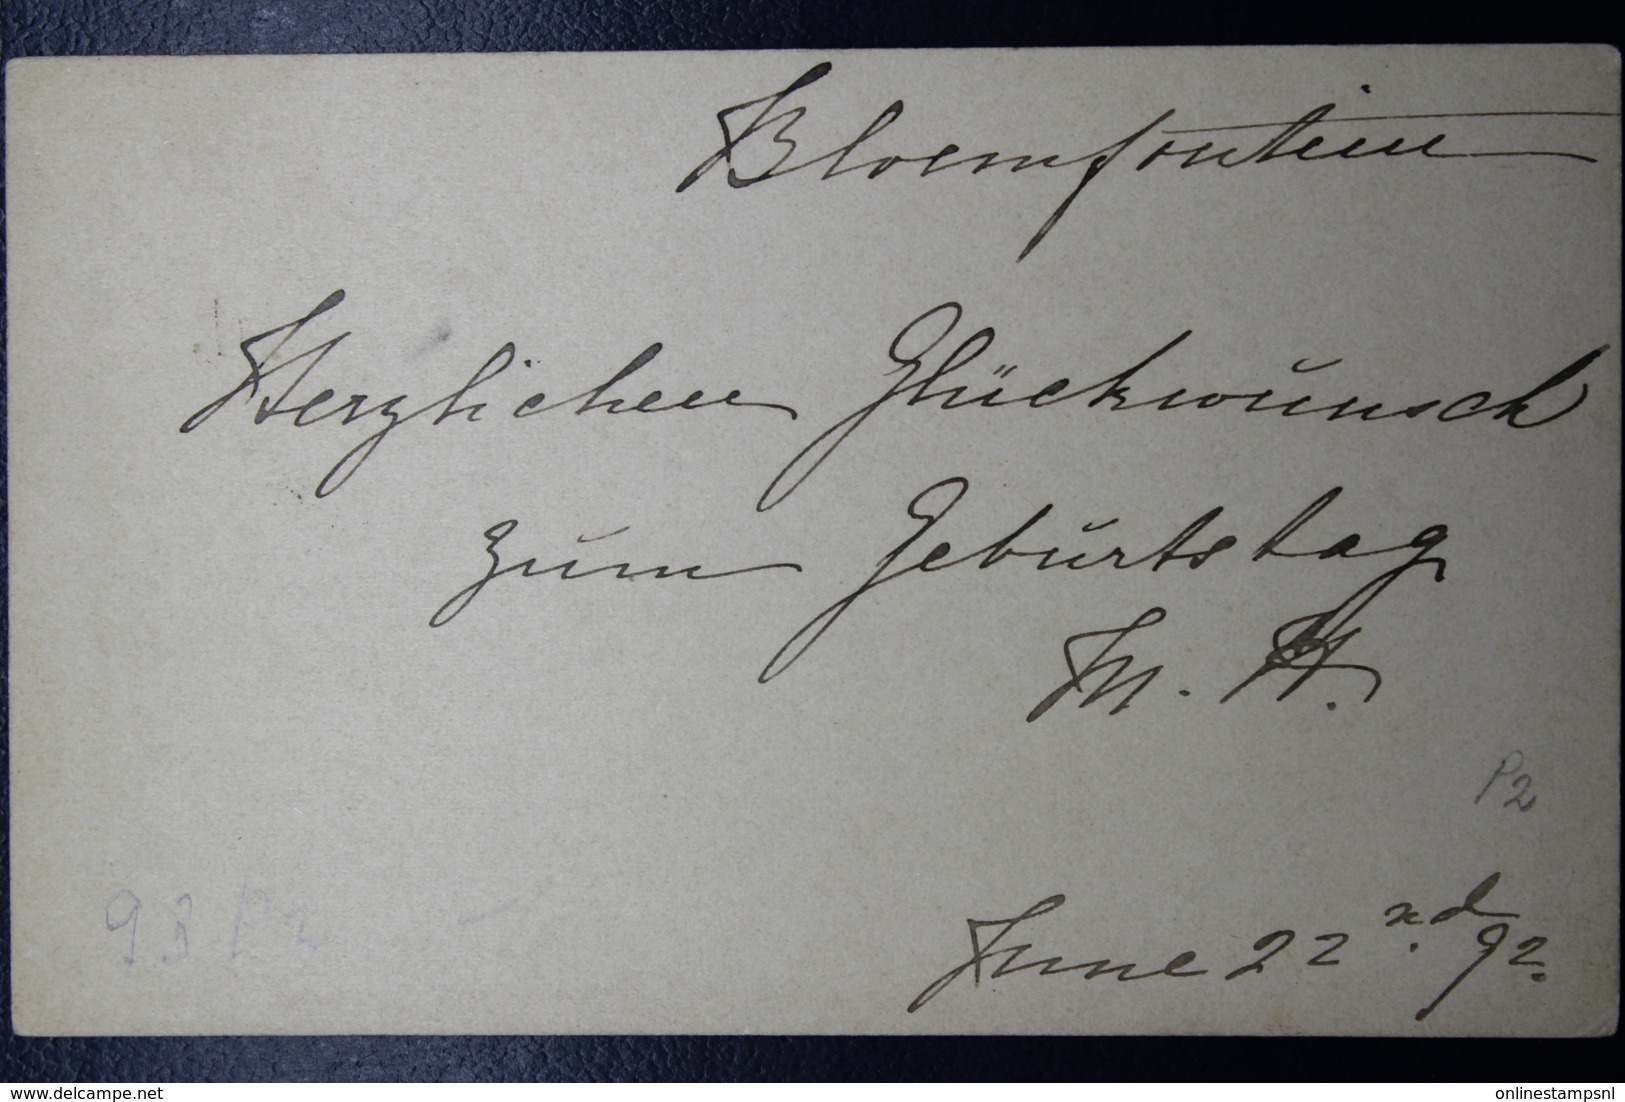 Bloemfontein
Herzlichen Glückwunsch
zum Geburtstag
M. H.
P2
June 22nd 92.
93 P2
www.delcampe.net
onlinestampsnl